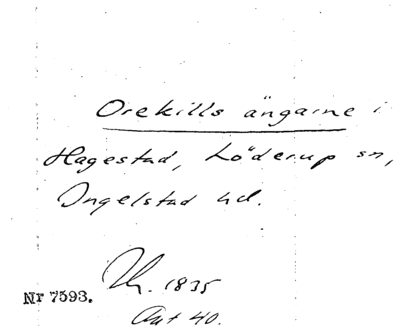 Orekills ängarne i
Hagestad, Löderup sn,
Ingelstad hd.
Th. 1835
Nr 7593.
Aut 40.